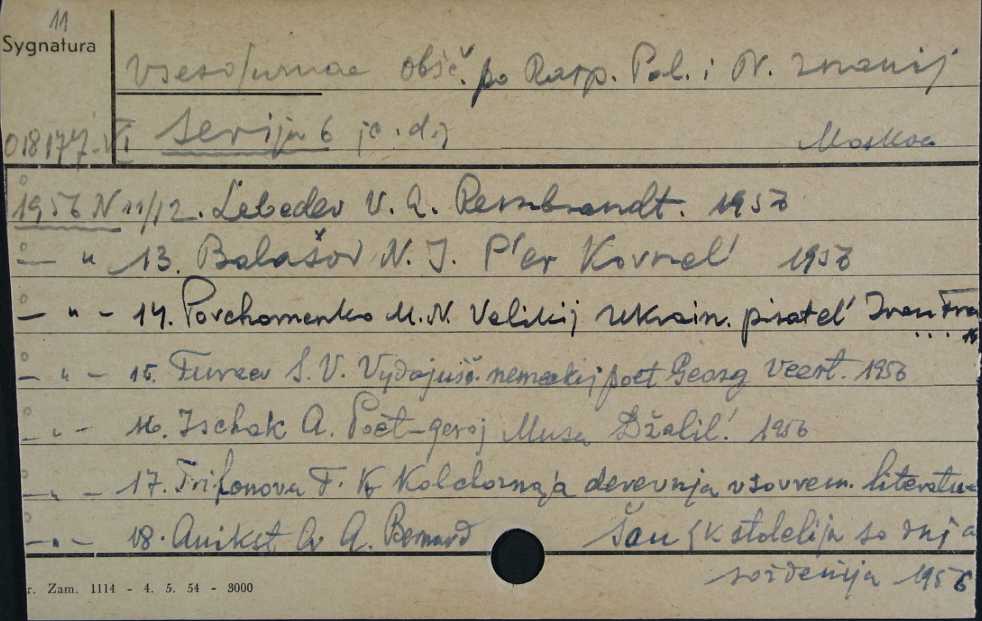 11
Sygnatura
Vsesojurnae obšč. po Rasp. Pol. i N. znanij
018177-VI Serija 6 jc. d. 7 Moskva
1956 N 11/12. Lebedev V. A. Rembrandt. 1956
— " 13. Balašov N. I. P'er Kornel' 1956
— " — 14. Parchomenko M. N. Velikij ukrain. pisatel' Ivan Fra
... 16
— " — 15. Turaev S. V. Vydajušč. nemeckij poet Georg Veert. 1956
— " — 16. Ischak A. Poèt-geroj Musa Džalil'. 1956
— " — 17. Trifonova T. K. Kolchoznaja derevnja v sovrem. literatu-
— " — 18. Anikst A. A. Bernard Šou (k stoletiju so dnja
roždenija 1956
r. Zam. 1114 - 4. 5. 54 - 3000